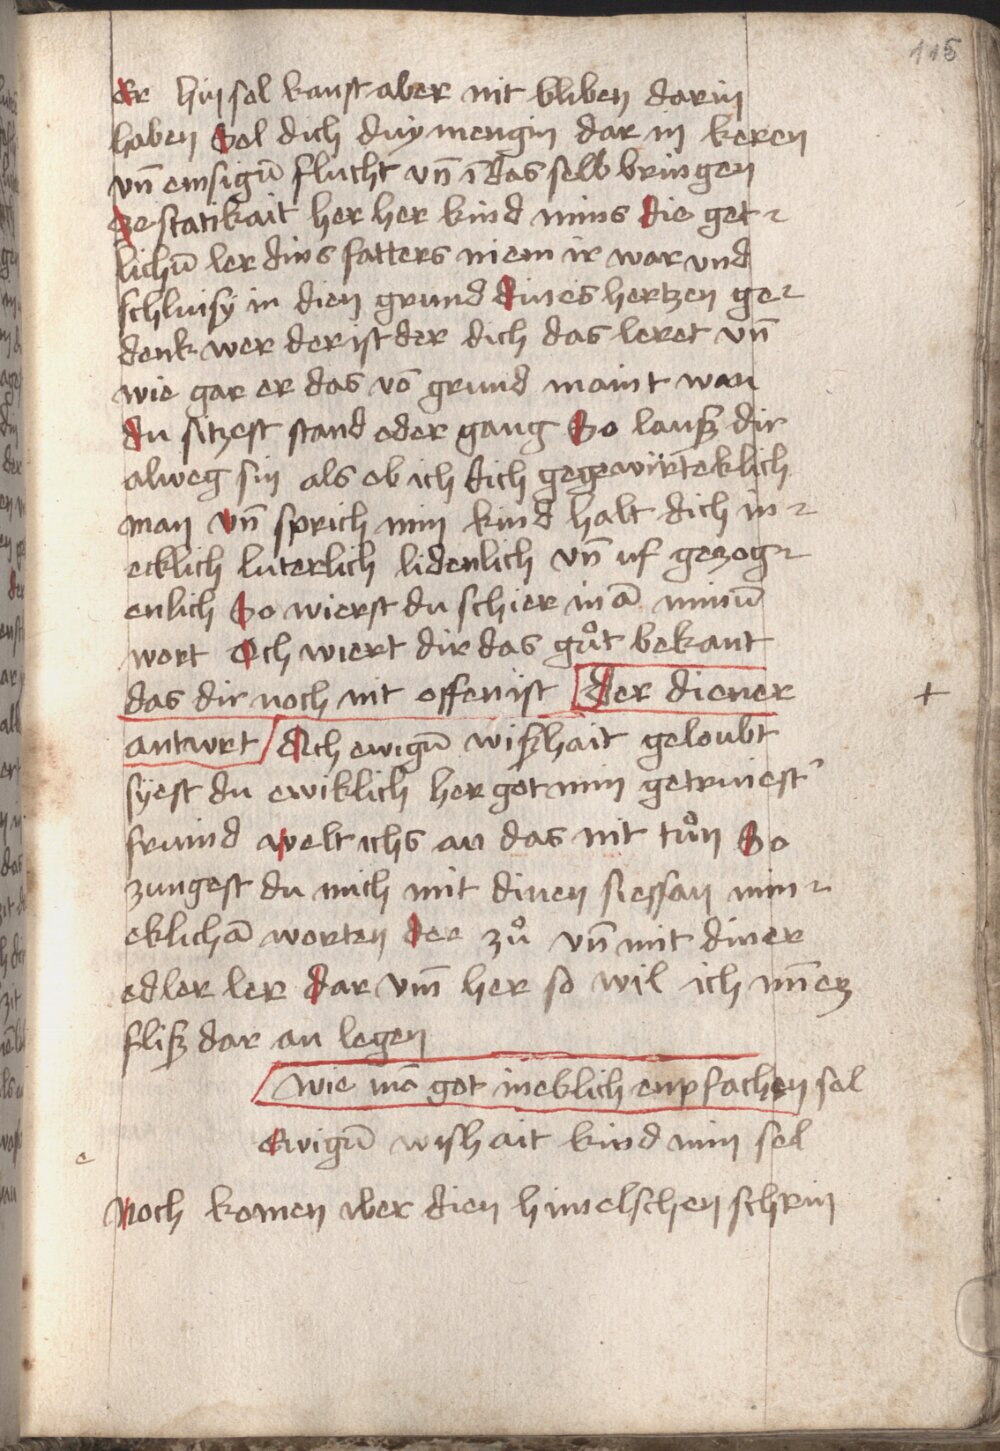 115
er hin sol kanst aber nit bliben darin
haben Sol dich duy mengin dar in keren
vn̄ emsigū flucht vn̄ ī das selb bringen
ze statikait her her kind mins die get-
lichū ler dins fatters niem ir war vnd
schluisy in dien grund dines hertzen ge-
denk wer der ist der dich das leret vn̄
wie gar er das vō grund maint wan
du sitzest stand oder gang So lauß dir
alweg sin als ob ich dich gegewirteklich
man vn̄ sprich min kind halt dich in-
ecklich luterlich lidenlich vn̄ uf gezog-
enlich So wierst du schier in ā minū
wort Och wiert dir das gůt bekant
das dir noch nit offen ist der diener
antwrt Ach ewigū wißhait geloubt
syest du ewiklich her got min getruiest
fruind welt ichs an das nit tůn So
zungest du mich mit dinen siessan min-
eklichā worten der zů vn̄ mit diner
edler ler dar vm̄ her so wil ich mēz
fliß dar an legen
wie mā got ineklich enpfachen sol
e
Ewigū wishait kind min sol
Noch komen vber dien himelschen schrin